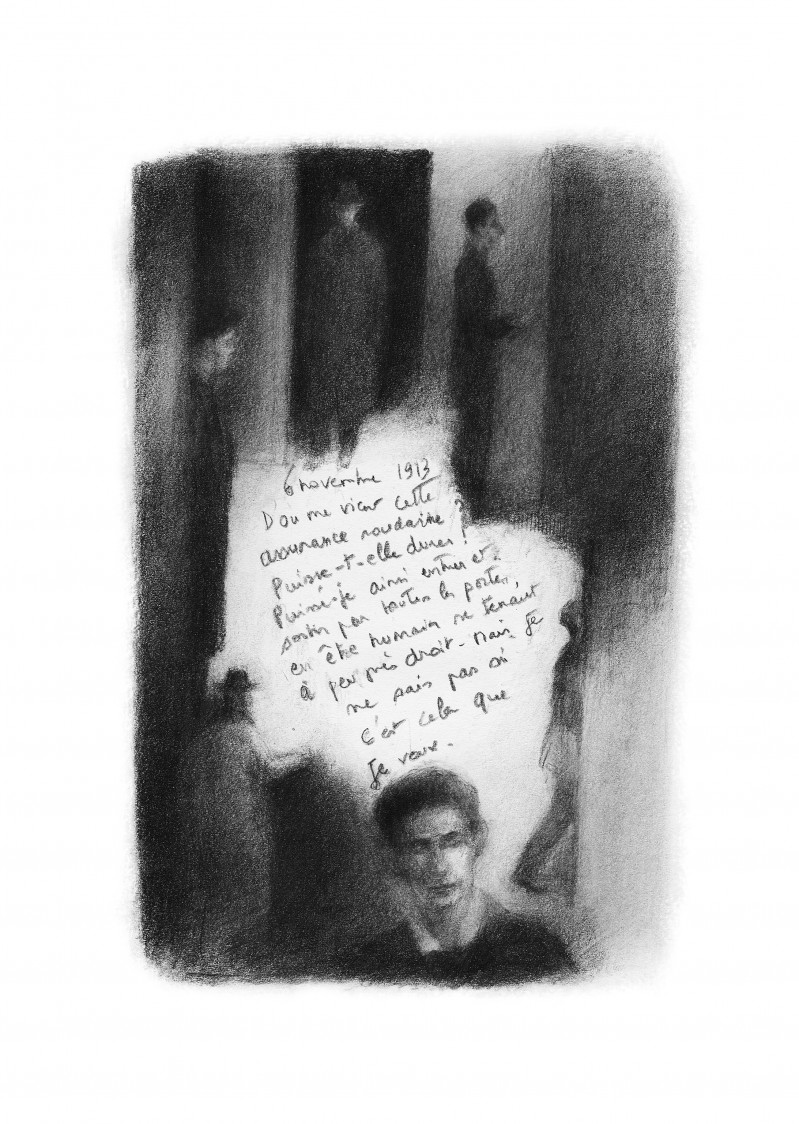 6 novembre 1913
D'où me vient cette
assurance soudaine ?
Puisse-t-elle durer !
Puissé-je ainsi entrer et
sortir par toutes les portes,
en être humain se tenant
à peu près droit. Mais je
ne sais pas si
c'est cela que
je veux.